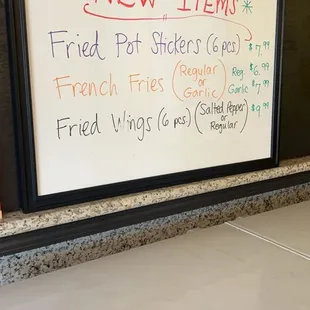 NEW ITEMS*
Fried Pot Stickers (6 pcs) $7.99
French Fries (Regular or Garlic) Reg. $6.99
Garlic $7.99
Fried Wings (6 pcs) (Salted Pepper or Regular) $9.99